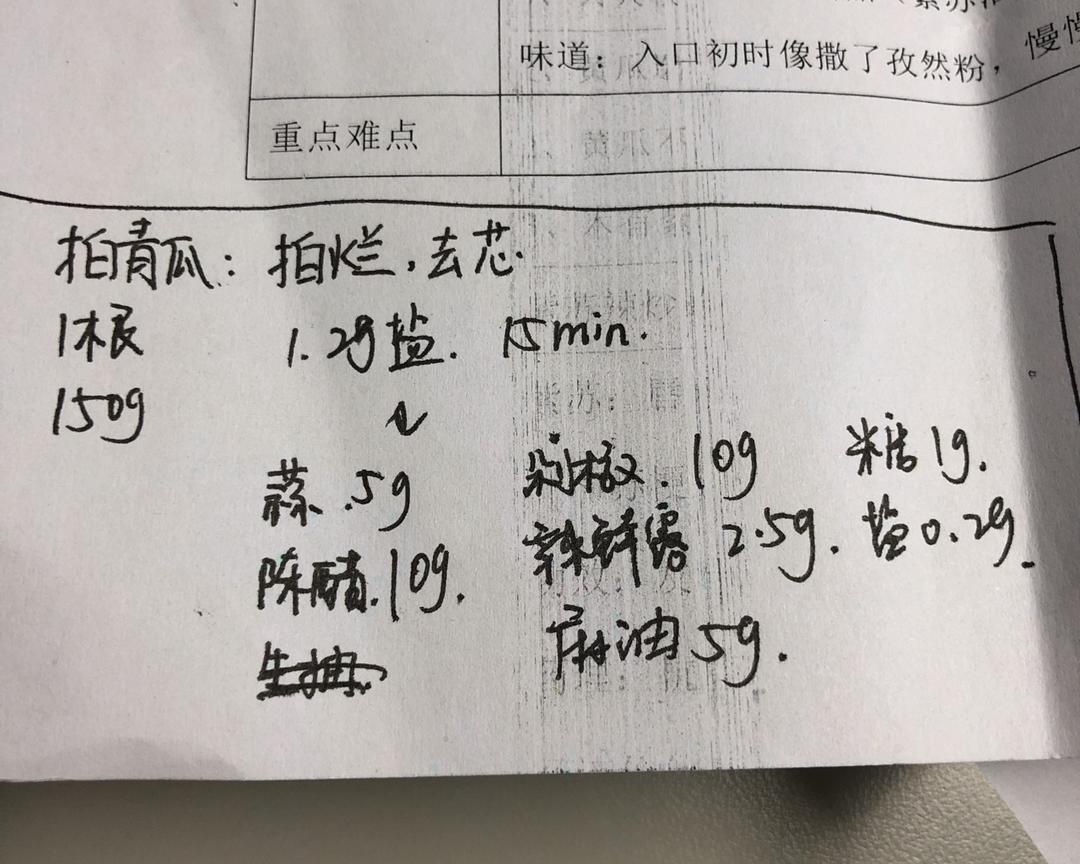 味道：入口初时像撒了孜然粉，慢慢
重点难点
拍青瓜：拍烂，去芯.
1根 1.2g盐. 15min.
150g
蒜.5g 剁椒.10g 糖1g.
陈醋.10g. 辣鲜露 2.5g. 盐0.2g.
生抽 麻油5g.